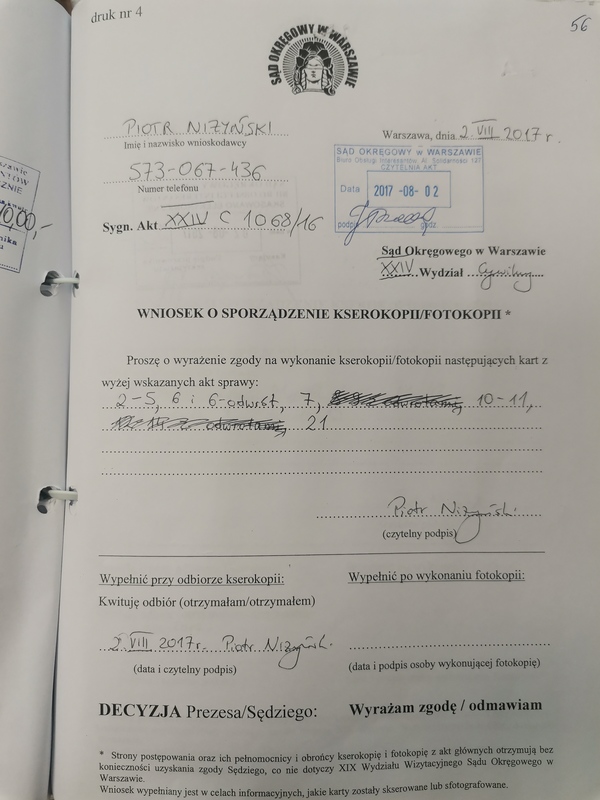 druk nr 4
56
SĄD OKRĘGOWY w WARSZAWIE
PIOTR NIŻYŃSKI
Imię i nazwisko wnioskodawcy
Warszawa, dnia 2 VIII 2017 r.
573-067-436
Numer telefonu
SĄD OKRĘGOWY w WARSZAWIE
Biuro Obsługi Interesantów, Al. Solidarności 127
CZYTELNIA AKT
Data 2017 -08- 02
podpis godz.
Sygn. Akt XXIV C 1068/16
Sąd Okręgowego w Warszawie
XXIV Wydział Cywilny
WNIOSEK O SPORZĄDZENIE KSEROKOPII/FOTOKOPII *
Proszę o wyrażenie zgody na wykonanie kserokopii/fotokopii następujących kart z
wyżej wskazanych akt sprawy:
2-5, 6 i 6-odwrót, 7, 10-11,
21
Piotr Niżyński
(czytelny podpis)
Wypełnić przy odbiorze kserokopii:
Wypełnić po wykonaniu fotokopii:
Kwituję odbiór (otrzymałam/otrzymałem)
2 VIII 2017r. Piotr Niżyński
(data i czytelny podpis)
(data i podpis osoby wykonującej fotokopię)
DECYZJA Prezesa/Sędziego: Wyrażam zgodę / odmawiam
* Strony postępowania oraz ich pełnomocnicy i obrońcy kserokopię i fotokopię z akt głównych otrzymują bez
konieczności uzyskania zgody Sędziego, co nie dotyczy XIX Wydziału Wizytacyjnego Sądu Okręgowego w
Warszawie.
Wniosek wypełniany jest w celach informacyjnych, jakie karty zostały skserowane lub sfotografowane.